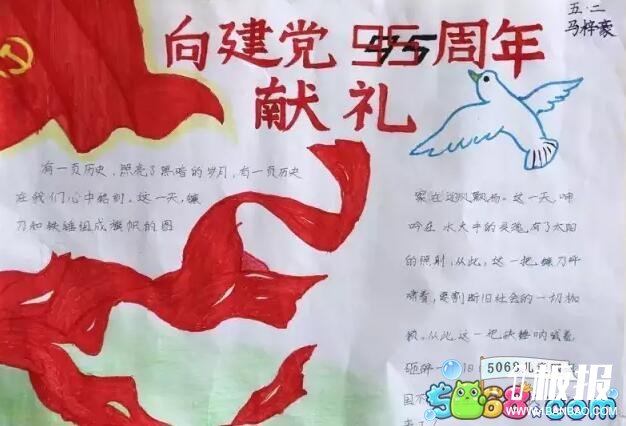 五.二
马梓豪
向建党95周年
献礼
有一页历史,照亮了黑暗的岁月,有一页历史
在我们心中酷刻。这一天,镰
刀和铁锤组成旗帜的图
案在迎风飘扬。这一天,呻
吟在水火中的灵魂,有了太阳
的照射,从此,这一把镰刀呼
啸着,要割断旧社会的一切枷
锁。从此,这一把铁锤呐喊着,
砸碎一
旧
国不
5068儿
5068.com
板报
WWW.BANBAO.COM